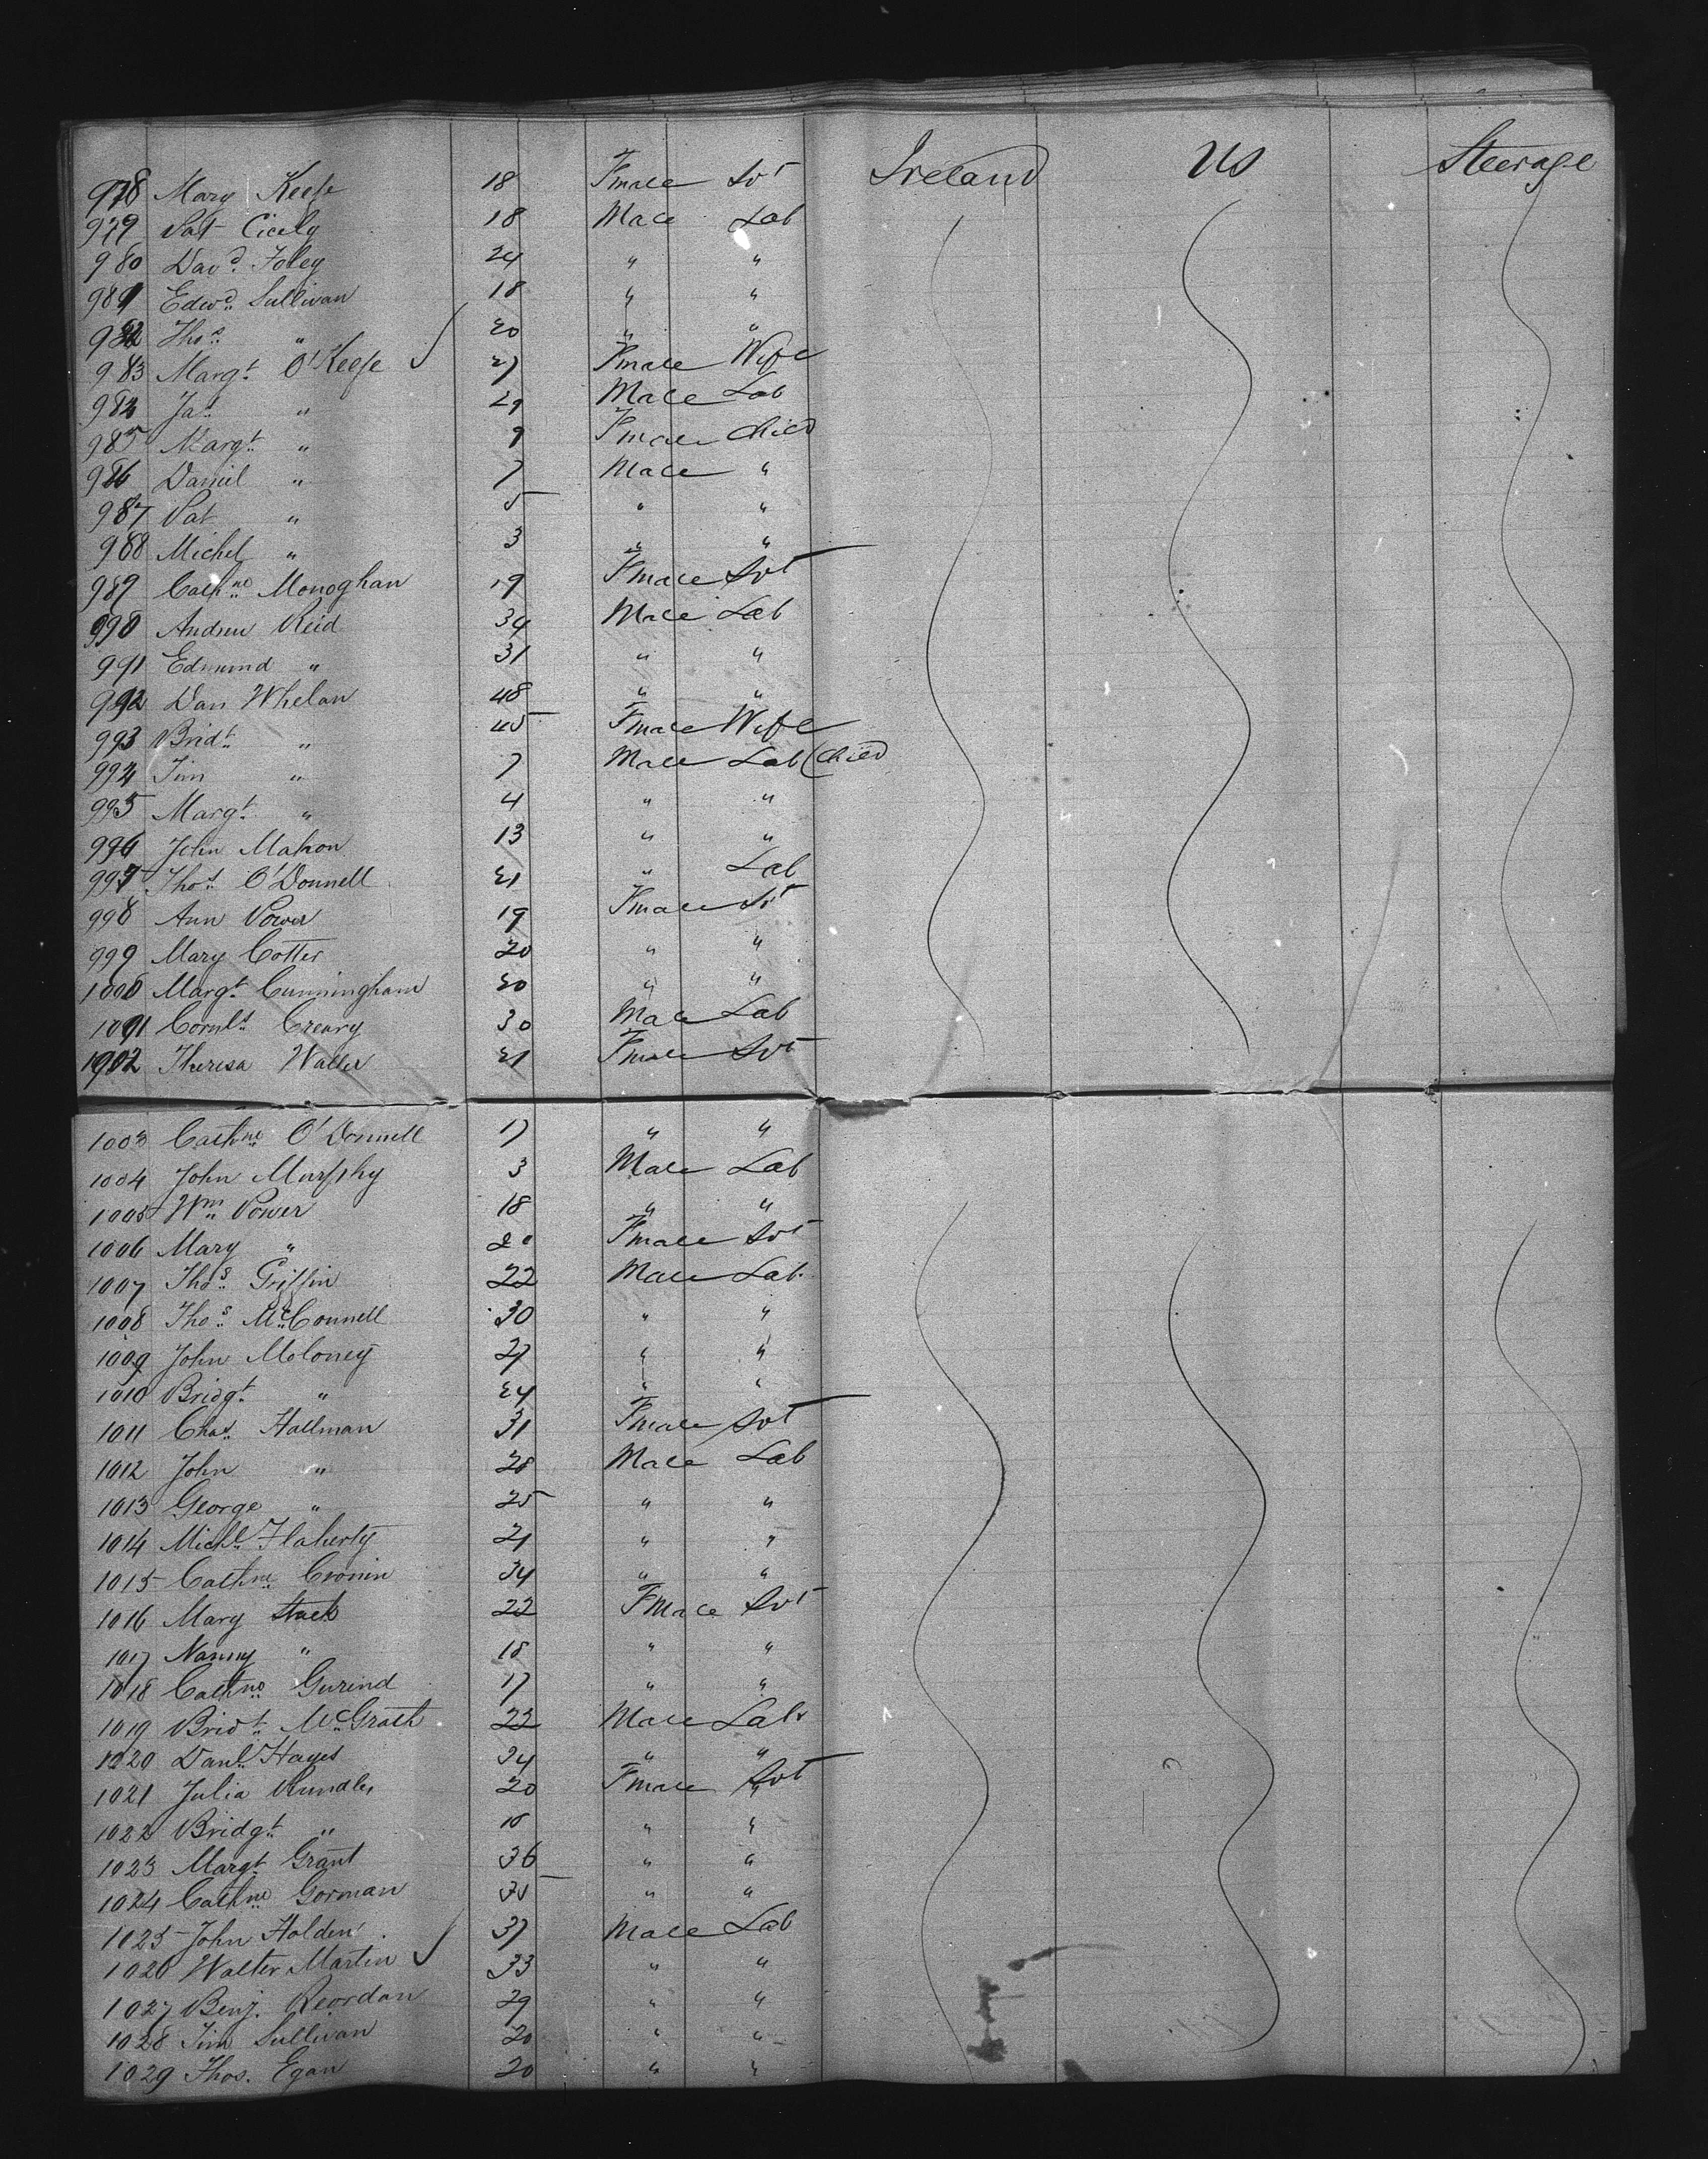 978 Mary Keefe 18 Fmale Svt Ireland US Steerage
979 Pat Cicely 18 Male Lab
980 Davd. Foley 24 " "
981 Edwd. Sullivan 18 " "
982 Thos. " 20 " "
983 Margt. O'Keefe 27 Fmale Wife
984 Jas. " 29 Male Lab
985 Margt. " 9 Fmale Child
986 Daniel " 7 Male "
987 Pat " 5 " "
988 Michel " 3 " "
989 Cathne Monoghan 19 Fmale Svt
990 Andrew Reid 34 Male Lab
991 Edmund " 31 " "
992 Dan Whelan 48 " "
993 Bridt. " 45 Fmale Wife
994 Jim " 7 Male Lab (Child
995 Margt. " 4 " "
996 John Mahon 13 " "
997 Thos. O'Donnell 21 " Lab
998 Ann Power 19 Fmale Svt
999 Mary Cotter 20 " "
1000 Margt. Cunningham 20 " "
1001 Cornls. Creary 30 Male Lab
1002 Theresa Waller 21 Fmale Svt
1003 Cathne O'Donnell 17 " "
1004 John Murphy 3 Male Lab
1005 Wm Power 18 " "
1006 Mary " 20 Fmale Svt
1007 Thos. Griffin 22 Male Lab.
1008 Thos. McConnell 30 " "
1009 John Moloney 27 " "
1010 Bridgt. " 24 " "
1011 Chas. Hallman 31 Fmale Svt
1012 John " 28 Male Lab
1013 George " 25 " "
1014 Michl. Flaherty 21 " "
1015 Cathne Cronin 34 " "
1016 Mary Stack 22 Fmale Svt
1017 Nanny " 18 " "
1018 Cathne Gurind 17 " "
1019 Bridt. McGrath 22 Male Lab
1020 Danl. Hayes 34 " "
1021 Julia Rundles 20 Fmale Svt
1022 Bridgt. " 18 " "
1023 Margt. Grant 36 " "
1024 Cathne Gorman 35 " "
1025 John Holden 37 Male Lab
1026 Walter Martin 33 " "
1027 Benj. Reordan 29 " "
1028 Jim Sullivan 20 " "
1029 Thos. Egan 20 " "